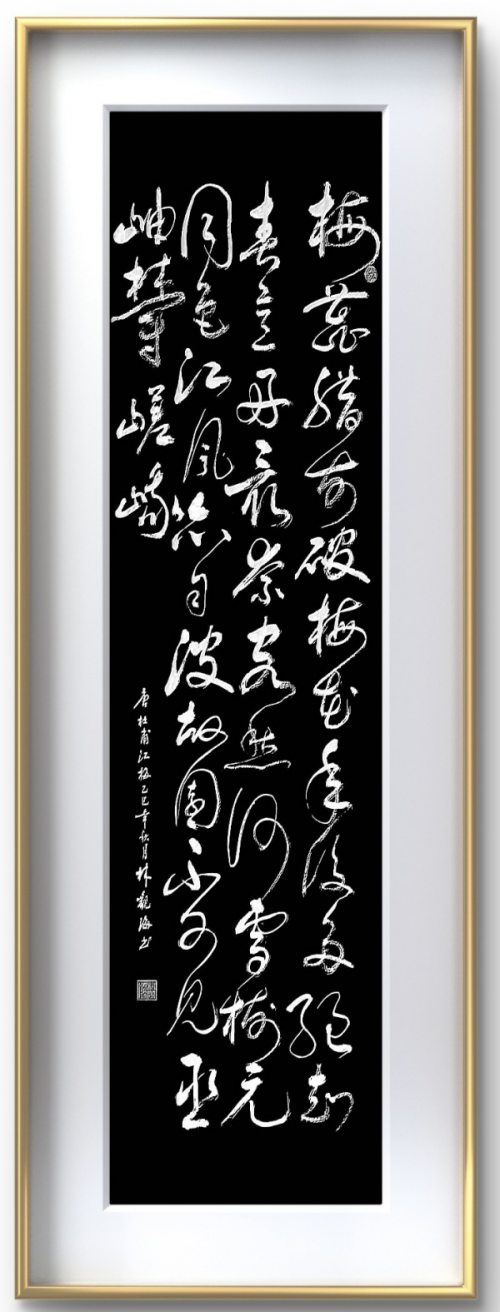 梅蕊臘前破梅花年後多絕知
春意好最奈客愁何雪樹元
同色江風亦自波故園不可見巫
岫鬱嵯峨
唐杜甫江梅乙巳年秋月林觀海书